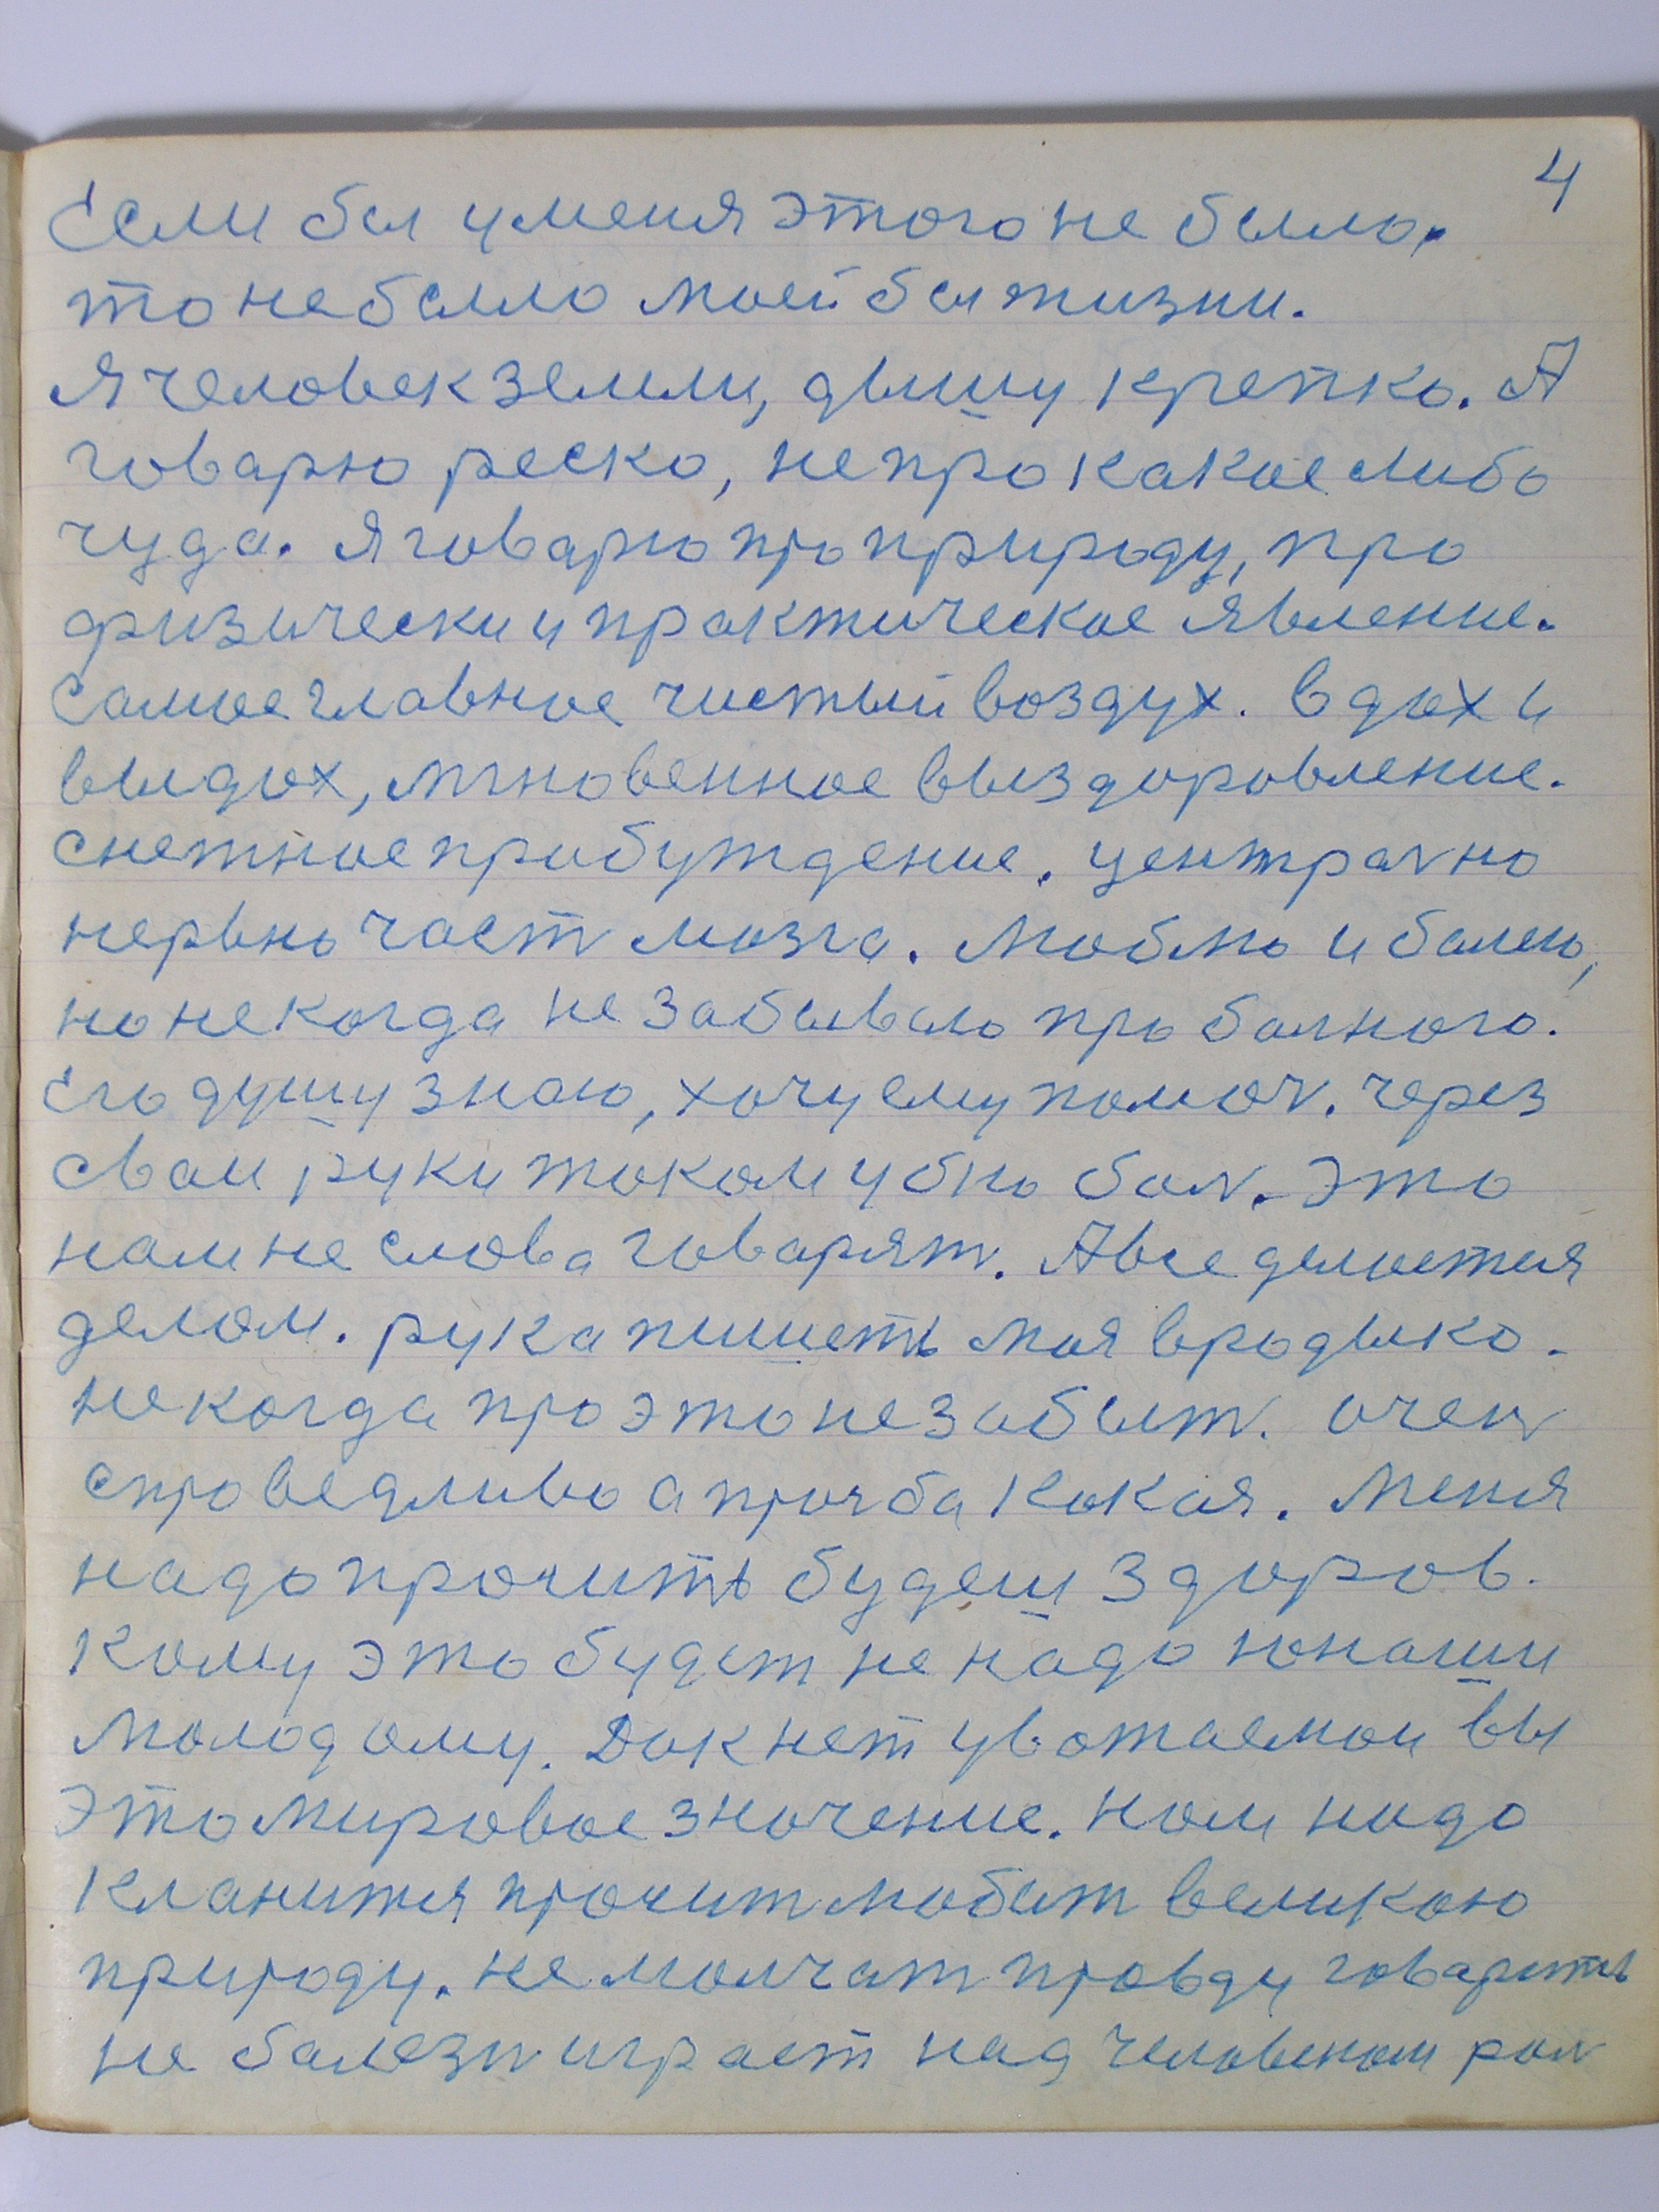 4
Если бы у меня этого не было.
то не было моей бы жизни.
Я человек земли, дышу крепко. А
говарю реско, не про какое либо
чуда. Я говарю про природу, про
физически и практическое явление.
Самое главное чистый воздух. вдох и
выдох, мгновенное выздоровление.
снежное пробуждение. централно
нервно част мозга. Люблю и балею,
но некогда не забываю про балного.
Его душу знаю, хочу ему помоч. через
сваи руки током убю бол. Это
нам не слова говарят. А все делается
делом. рука пишеть моя владыко.
некогда про это не забыт. очен
справедливо а прозба какая. Меня
надо просить будеш здоров.
Кому это будет не надо юнаши
молодому. Дак нет уважаемои вы
Это мировое значение. нам надо
кланится просит любит великою
природу. не молчат правду говарить
не балезн играет над человеком рол